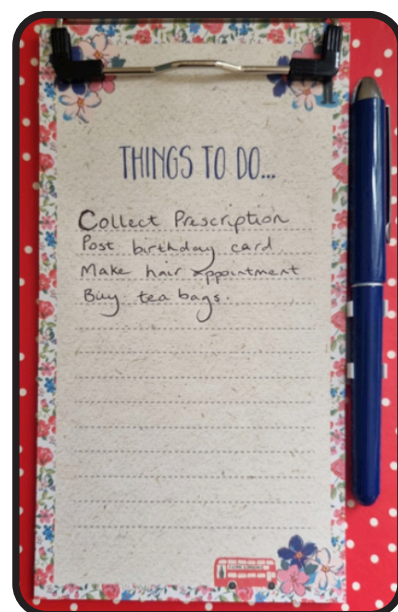 THINGS TO DO...
Collect Prescription
Post birthday card
Make hair appointment
Buy tea bags.